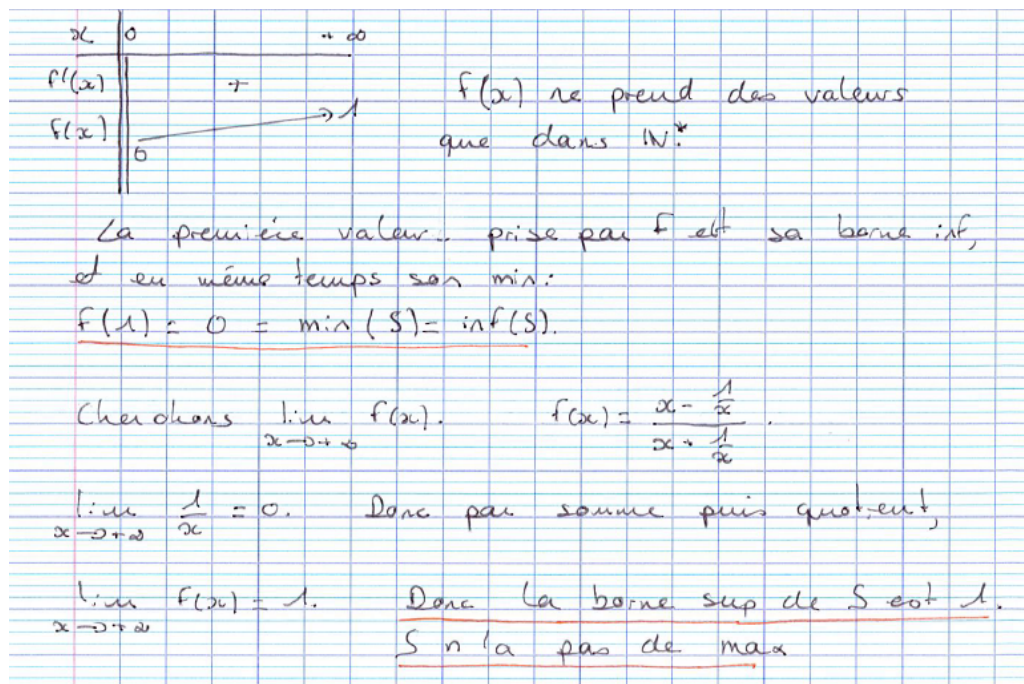 x 0 +∞
f'(x) +
f(x) 0 → 1
f(x) ne prend des valeurs
que dans ℕ*.
La première valeur prise par f est sa borne inf,
et en même temps son min :
f(1) = 0 = min (S) = inf(S).
Cherchons lim x→+∞ f(x). f(x) = (x - 1/x)/(x + 1/x).
lim x→+∞ 1/x = 0. Donc par somme puis quotient,
lim x→+∞ f(x) = 1. Donc la borne sup de S est 1.
S n'a pas de max